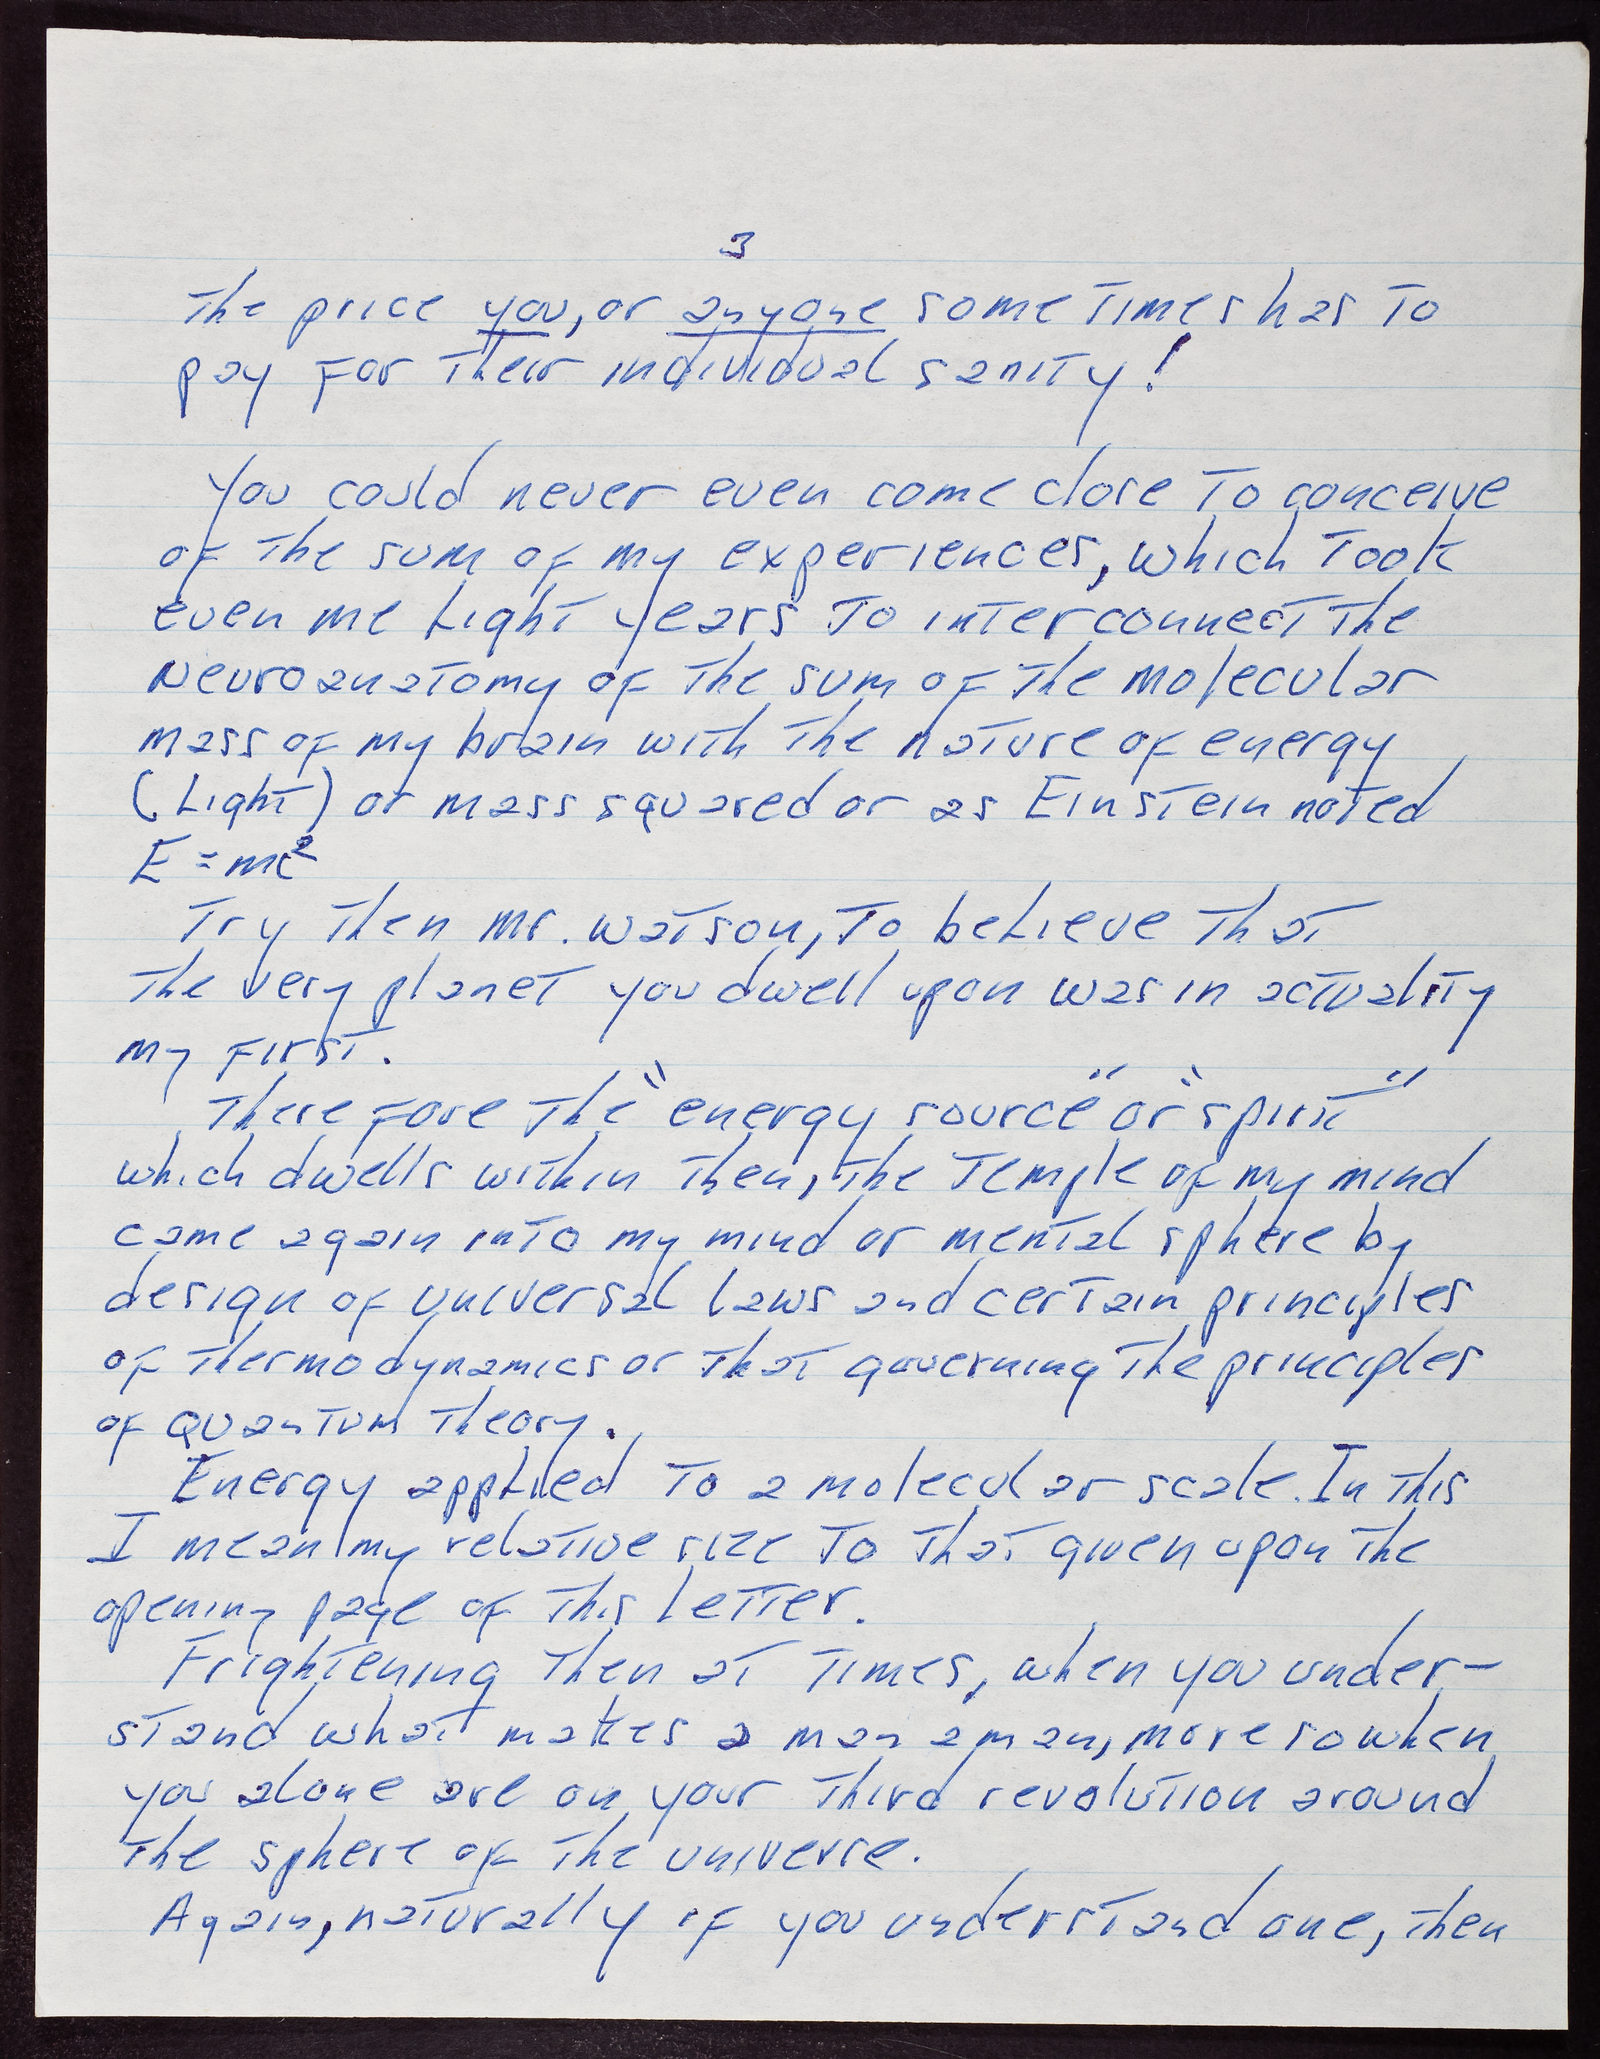 3
The price you, or anyone sometimes has to
pay for their individual sanity!
You could never even come close to conceive
of the sum of my experiences, which took
even me light years to interconnect the
neuroanatomy of the sum of the molecular
mass of my brain with the nature of energy
(Light) or mass squared or as Einstein noted
E=mc²
Try then Mr. Watson, to believe that
the very planet you dwell upon was in actuality
my first.
Therefore the "energy source" or "spirit"
which dwells within then, the temple of my mind
came again into my mind or mental sphere by
design of universal laws and certain principles
of thermodynamics or that governing the principles
of quantum theory.
Energy applied to a molecular scale. In this
I mean my relative size to that given upon the
opening page of this letter.
Frightening then at times, when you under-
stand what makes a man a man, more so when
you alone are on your third revolution around
the sphere of the universe.
Again, naturally if you understand one, then